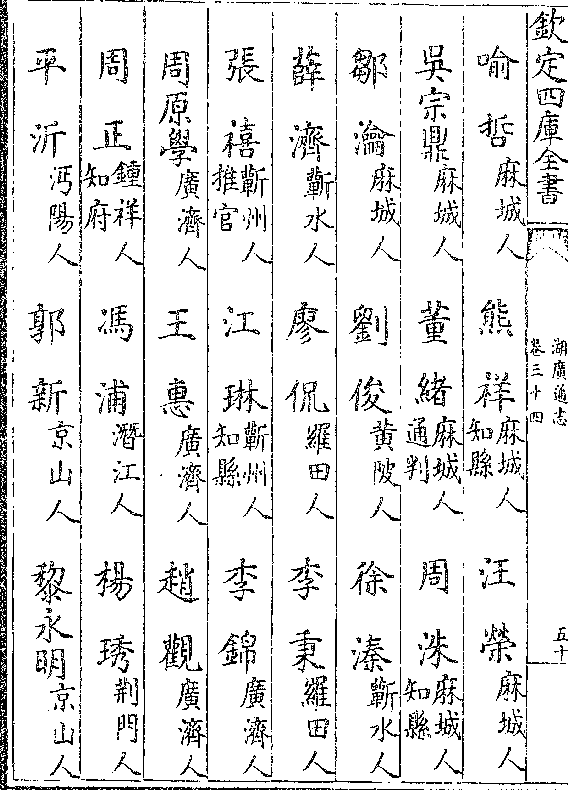 欽定四庫全書
湖廣通志
卷三十四
五十
喻哲麻城人 熊祥麻城人知縣 汪榮麻城人
吳宗鼎麻城人 董緒麻城人通判 周洙麻城人知縣
鄒瀹麻城人 劉俊黃陂人 徐溱蘄水人
薛濟蘄水人 廖侃羅田人 李秉羅田人
張禧蘄州人推官 江琳蘄州人知縣 李錦廣濟人
周原學廣濟人 王惠廣濟人 趙觀廣濟人
周正鍾祥人知府 馮浦潛江人 楊琇荆門人
平沂沔陽人 郭新京山人 黎永明京山人